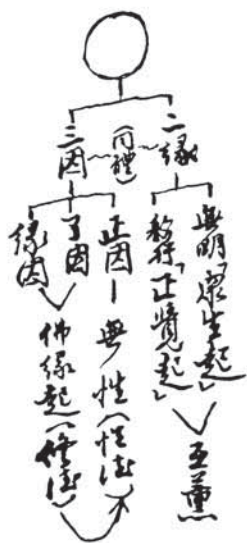 二緣
(同體)
三因
無明「眾生起」
教行「正覺起」
互薰
正因—無性(性德)
了因
緣因
佛緣起(修德)